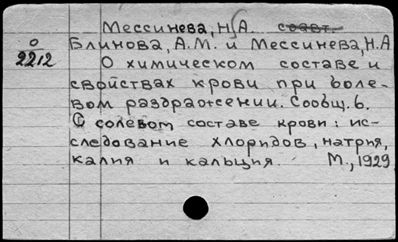 Мессинева, Н.А. соавт.
О
2212
Блинова, А.М. и Мессинева, Н.А
О химическом составе и
свойствах крови при боле-
вом раздражении. Сообщ. 6.
О солевом составе крови: ис-
следование хлоридов, натрия,
калия и кальция. М., 1929